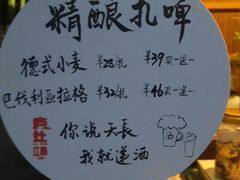 精酿扎啤
德式小麦 ¥28/扎 ¥39买一送一
巴伐利亚拉格 ¥32/扎 ¥46买一送一
你说天长
我就递酒
酒